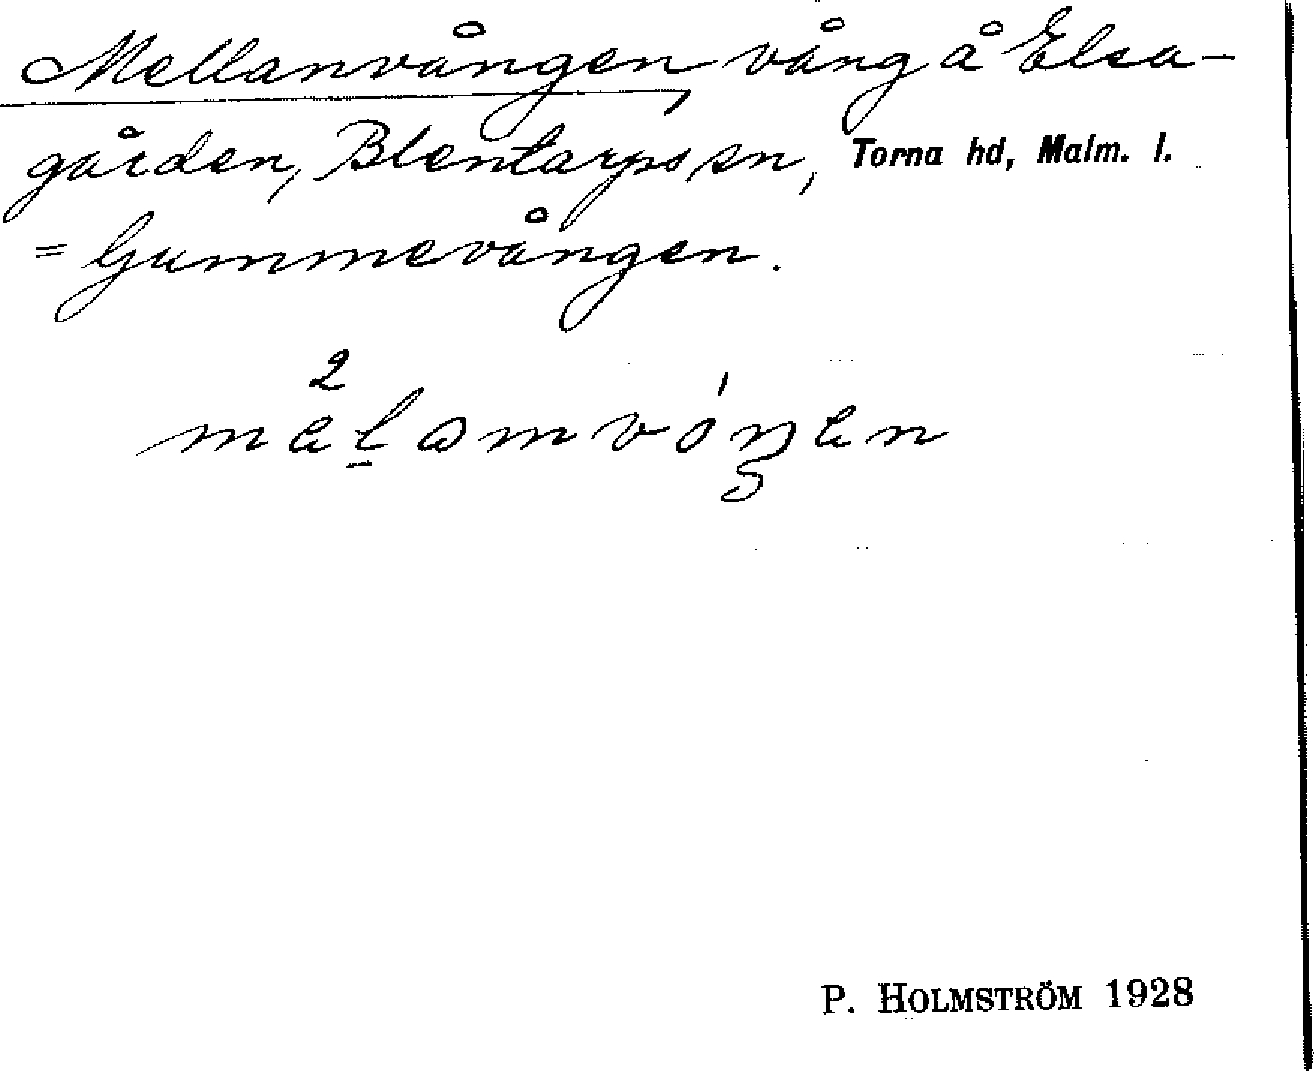 Mellanvången, vång å Elsa-
gården, Blentarps sn, Torna hd, Malm. l.
= Gummevången.
P. HOLMSTRÖM 1928